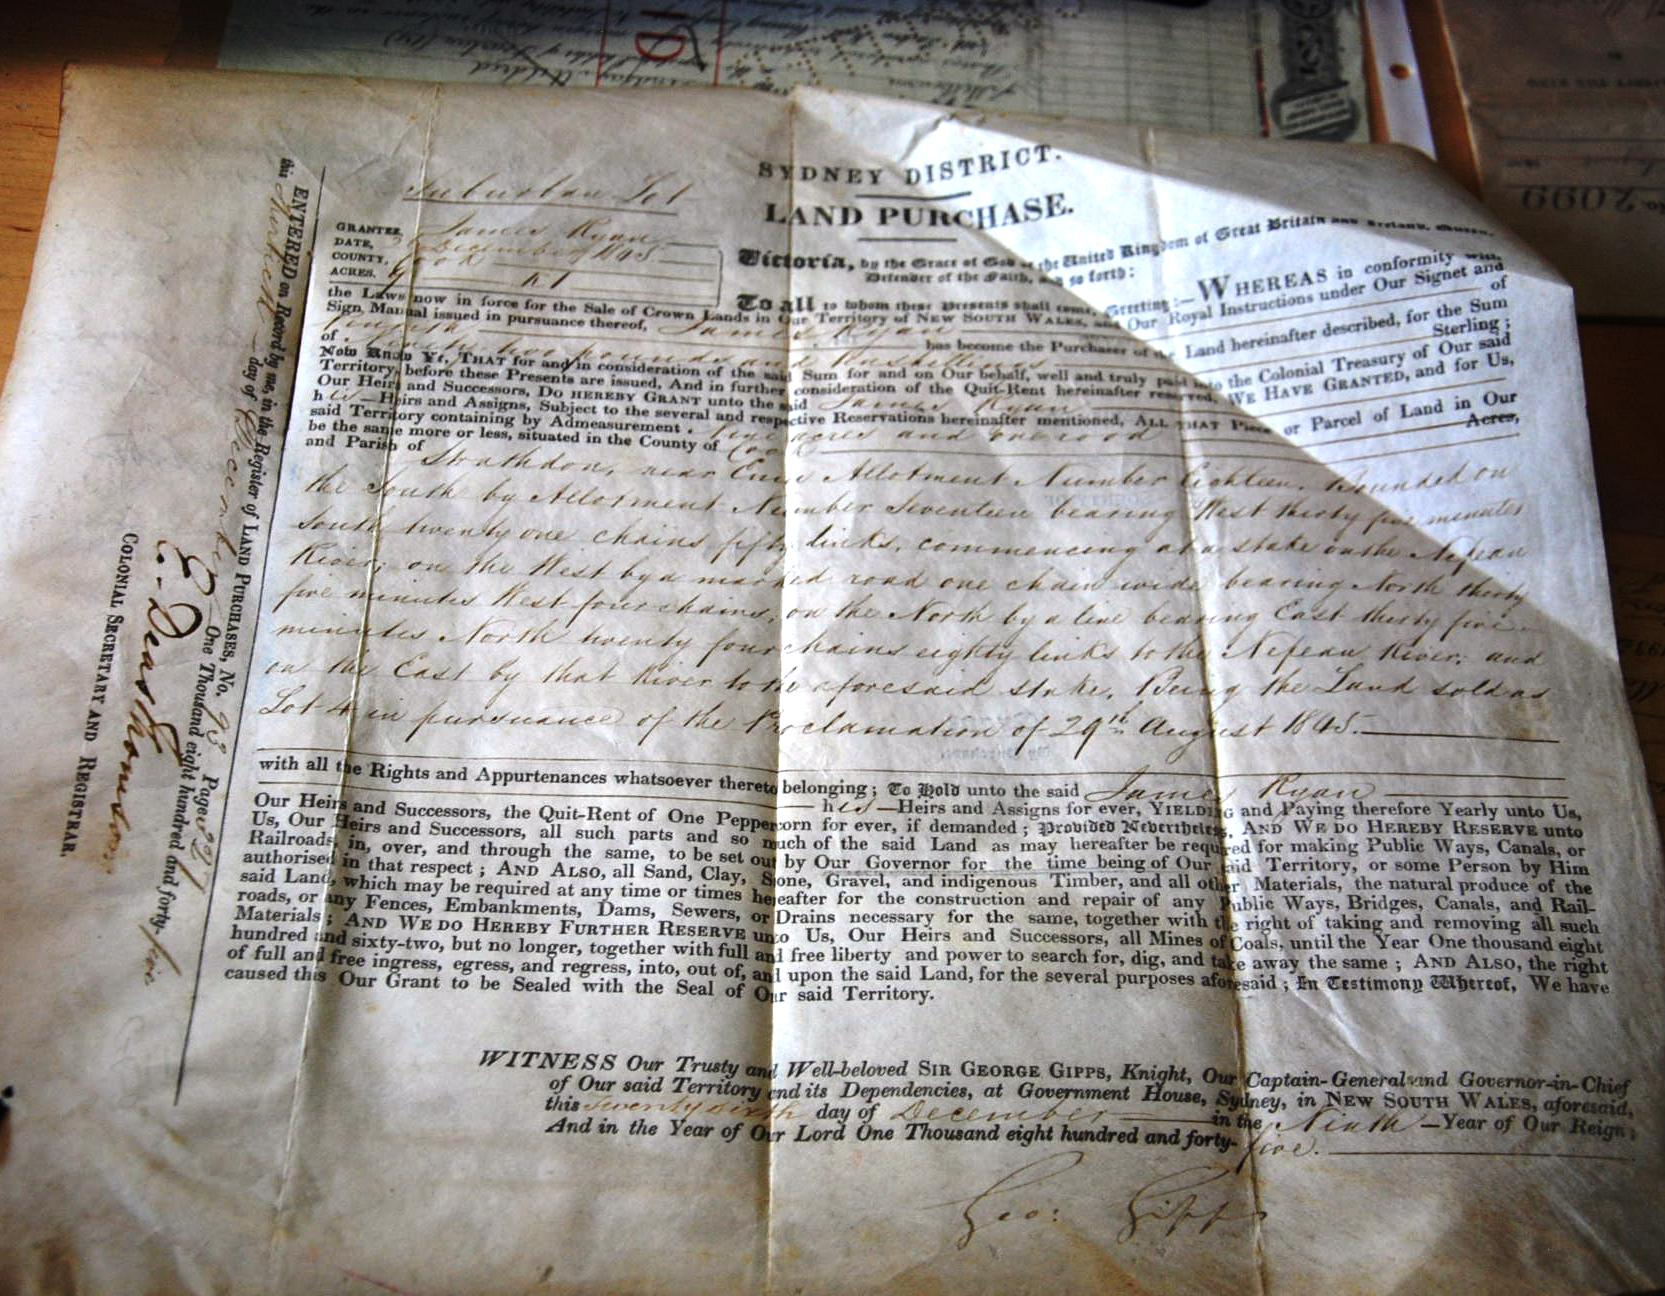 SYDNEY DISTRICT.
LAND PURCHASE.
Suburban Lot
GRANTEE, James Ryan
DATE, December 1845
COUNTY, Cook
ACRES,
Victoria, by the Grace of God of the United Kingdom of Great Britain and Ireland, Queen,
Defender of the Faith, and so forth:
To all to whom these Presents shall come, Greeting:—WHEREAS in conformity with
the Laws now in force for the Sale of Crown Lands in Our Territory of NEW SOUTH WALES, and Our Royal Instructions under Our Signet and
Sign Manual issued in pursuance thereof, James Ryan of
Penrith has become the Purchaser of the Land hereinafter described, for the Sum
of pounds and shillings Sterling;
Now Know Ye, THAT for and in consideration of the said Sum for and on Our behalf, well and truly paid into the Colonial Treasury of Our said
Territory, before these Presents are issued, And in further consideration of the Quit-Rent hereinafter reserved, WE HAVE GRANTED, and for Us,
Our Heirs and Successors, DO HEREBY GRANT unto the said James Ryan
his Heirs and Assigns, Subject to the several and respective Reservations hereinafter mentioned, ALL THAT Piece or Parcel of Land in Our
said Territory containing by Admeasurement, nine acres and one rood Acres,
be the same more or less, situated in the County of Cook
and Parish of Strathdon, near Emu Allotment Number Eighteen. Bounded on
the South by Allotment Number Seventeen bearing West thirty five minutes
South twenty one chains fifty links, commencing at a stake on the Nepean
River; on the West by a marked road one chain wide bearing North thirty
five minutes West four chains; on the North by a line bearing East thirty five
minutes North twenty four chains eighty links to the Nepean River; and
on the East by that River to the aforesaid stake. Being the Land sold as
Lot 4 in pursuance of the Proclamation of 29th August 1845.
with all the Rights and Appurtenances whatsoever thereto belonging; To Hold unto the said James Ryan
his—Heirs and Assigns for ever, YIELDING and Paying therefore Yearly unto Us,
Our Heirs and Successors, the Quit-Rent of One Peppercorn for ever, if demanded; Provided Nevertheless, AND WE DO HEREBY RESERVE unto
Us, Our Heirs and Successors, all such parts and so much of the said Land as may hereafter be required for making Public Ways, Canals, or
Railroads, in, over, and through the same, to be set out by Our Governor for the time being of Our said Territory, or some Person by Him
authorised in that respect; AND ALSO, all Sand, Clay, Stone, Gravel, and indigenous Timber, and all other Materials, the natural produce of the
said Land, which may be required at any time or times hereafter for the construction and repair of any Public Ways, Bridges, Canals, and Rail-
roads, or any Fences, Embankments, Dams, Sewers, or Drains necessary for the same, together with the right of taking and removing all such
Materials; AND WE DO HEREBY FURTHER RESERVE unto Us, Our Heirs and Successors, all Mines of Coals, until the Year One thousand eight
hundred and sixty-two, but no longer, together with full and free liberty and power to search for, dig, and take away the same; AND ALSO, the right
of full and free ingress, egress, and regress, into, out of, and upon the said Land, for the several purposes aforesaid; In Testimony Whereof, We have
caused this Our Grant to be Sealed with the Seal of Our said Territory.
WITNESS Our Trusty and Well-beloved SIR GEORGE GIPPS, Knight, Our Captain-General and Governor-in-Chief
of Our said Territory and its Dependencies, at Government House, Sydney, in NEW SOUTH WALES, aforesaid,
this twenty sixth day of December in the Ninth—Year of Our Reign;
And in the Year of Our Lord One Thousand eight hundred and forty-five.
Geo: Gipps
ENTERED on Record by me, in the Register of LAND PURCHASES, No. 93 Page
this day of December One Thousand eight hundred and forty-five
E. Deas Thomson
COLONIAL SECRETARY AND REGISTRAR.
No. 2099